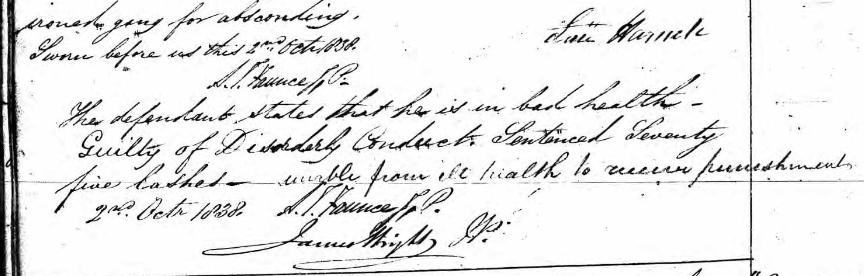 ironed gang for absconding.
Sworn before us this 2nd Octr 1838.
A. T. Faunce J P.
The defendant states that he is in bad health –
Guilty of Disorderly Conduct. Sentenced Seventy
five lashes – unable from ill health to receive punishment
2nd Octr 1838. A. T. Faunce J P.
James Wright JP.